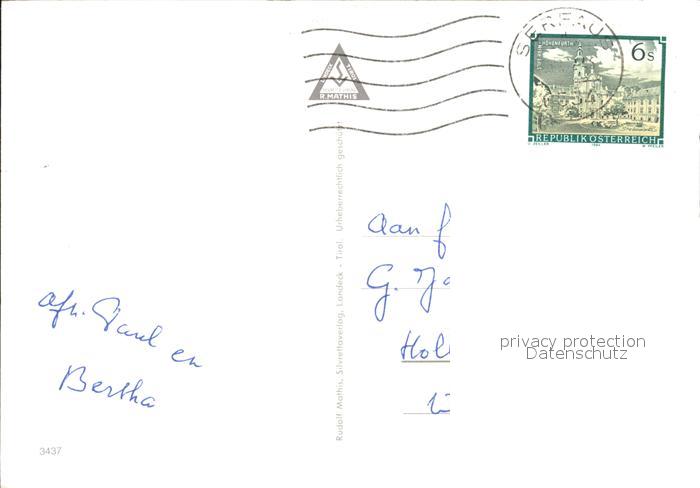 SERFAUS
6 S
STIFT REIN - HOHENFURTH
REPUBLIK ÖSTERREICH
O. ZEILLER 1984 W. PFEILER
R. MATHIS
Rudolf Mathis, Silvrettaverlag, Landeck - Tirol. Urheberrechtlich geschützt
Aan f
G. Ja
Holl
afz. Paul en
Bertha
privacy protection
Datenschutz
3437